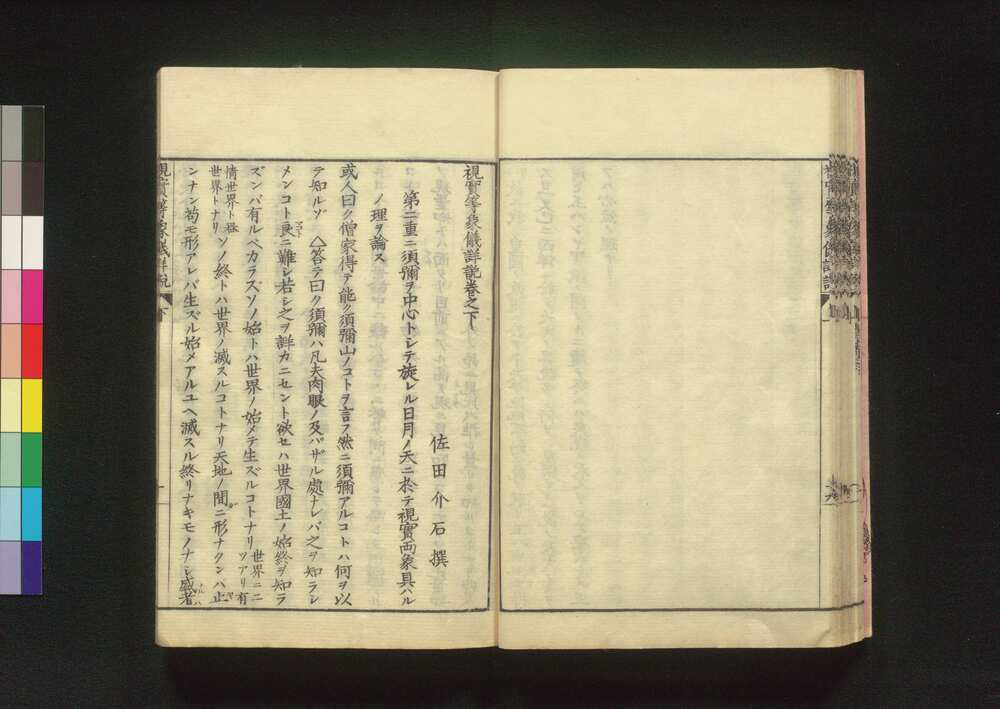 視實等象儀詳説巻之下
佐田介石撰
第二重ニ須彌ヲ中心トシテ旋レル日月ノ天ニ於テ視實両象具ハル
ノ理ヲ論ス
或人曰ク僧家得テ能ク須彌山ノコトヲ言フ然ニ須彌アルコトハ何ヲ以
テ知ルゾ △答テ曰ク須彌ハ凡夫肉眼ノ及バザル處ナレバ之ヲ知ラシ
メンコト良ニ難シ若シ之ヲ詳カニセント欲セハ世界國土ノ始終ヲ知ラ
ズンバ有ルベカラズソノ始トハ世界ノ始メテ生ズルコトナリ 世界ニ二ツアリ有
情世界ト器世界トナリ ソノ終トハ世界ノ滅スルコトナリ天地ノ間ニ形ナクンバ止
ンナン苟モ形アレバ生ズル始メアルユヘ滅スル終リナキモノナシ盛者
視實等象儀詳説 下